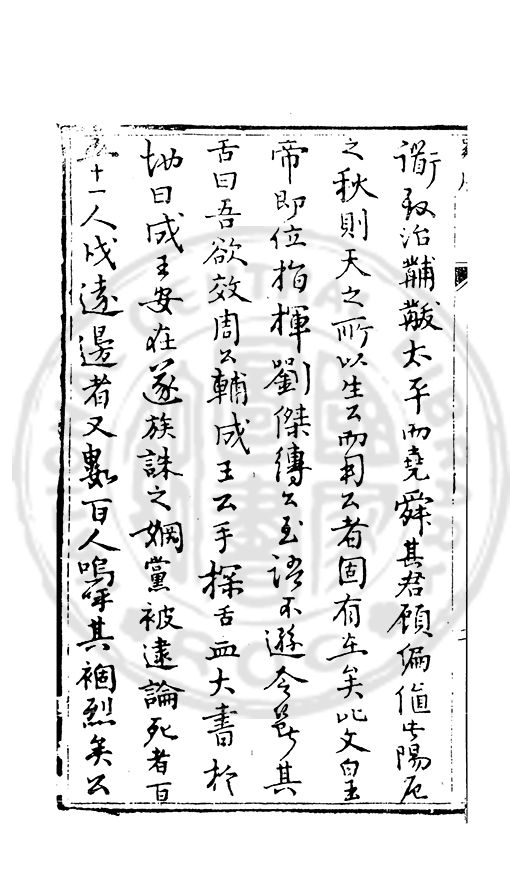 衡致治黼黻太平而堯舜其君顧偏值此陽厄
之秋則天之所以生公而用公者固有在矣此文皇
帝即位指揮劉傑縛公至語不遜令截其
舌曰吾欲效周公輔成王公手探舌血大書於
地曰成王安在遂族誅之姻黨被逮論死者百
五十一人戍遠邊者又數百人嗚呼其禍烈矣公